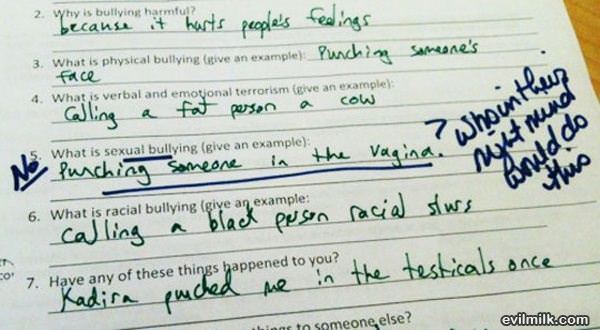 2. Why is bullying harmful?
because it hurts people's feelings
3. What is physical bullying (give an example): Punching someone's
face
4. What is verbal and emotional terrorism (give an example):
Calling a fat person a cow
No
5. What is sexual bullying (give an example):
Punching someone in the vagina.
? Who in their
right mind
would do
this
6. What is racial bullying (give an example:
calling a black person racial slurs
7. Have any of these things happened to you?
Kadira punched me in the testicals once
to someone else?
evilmilk.com